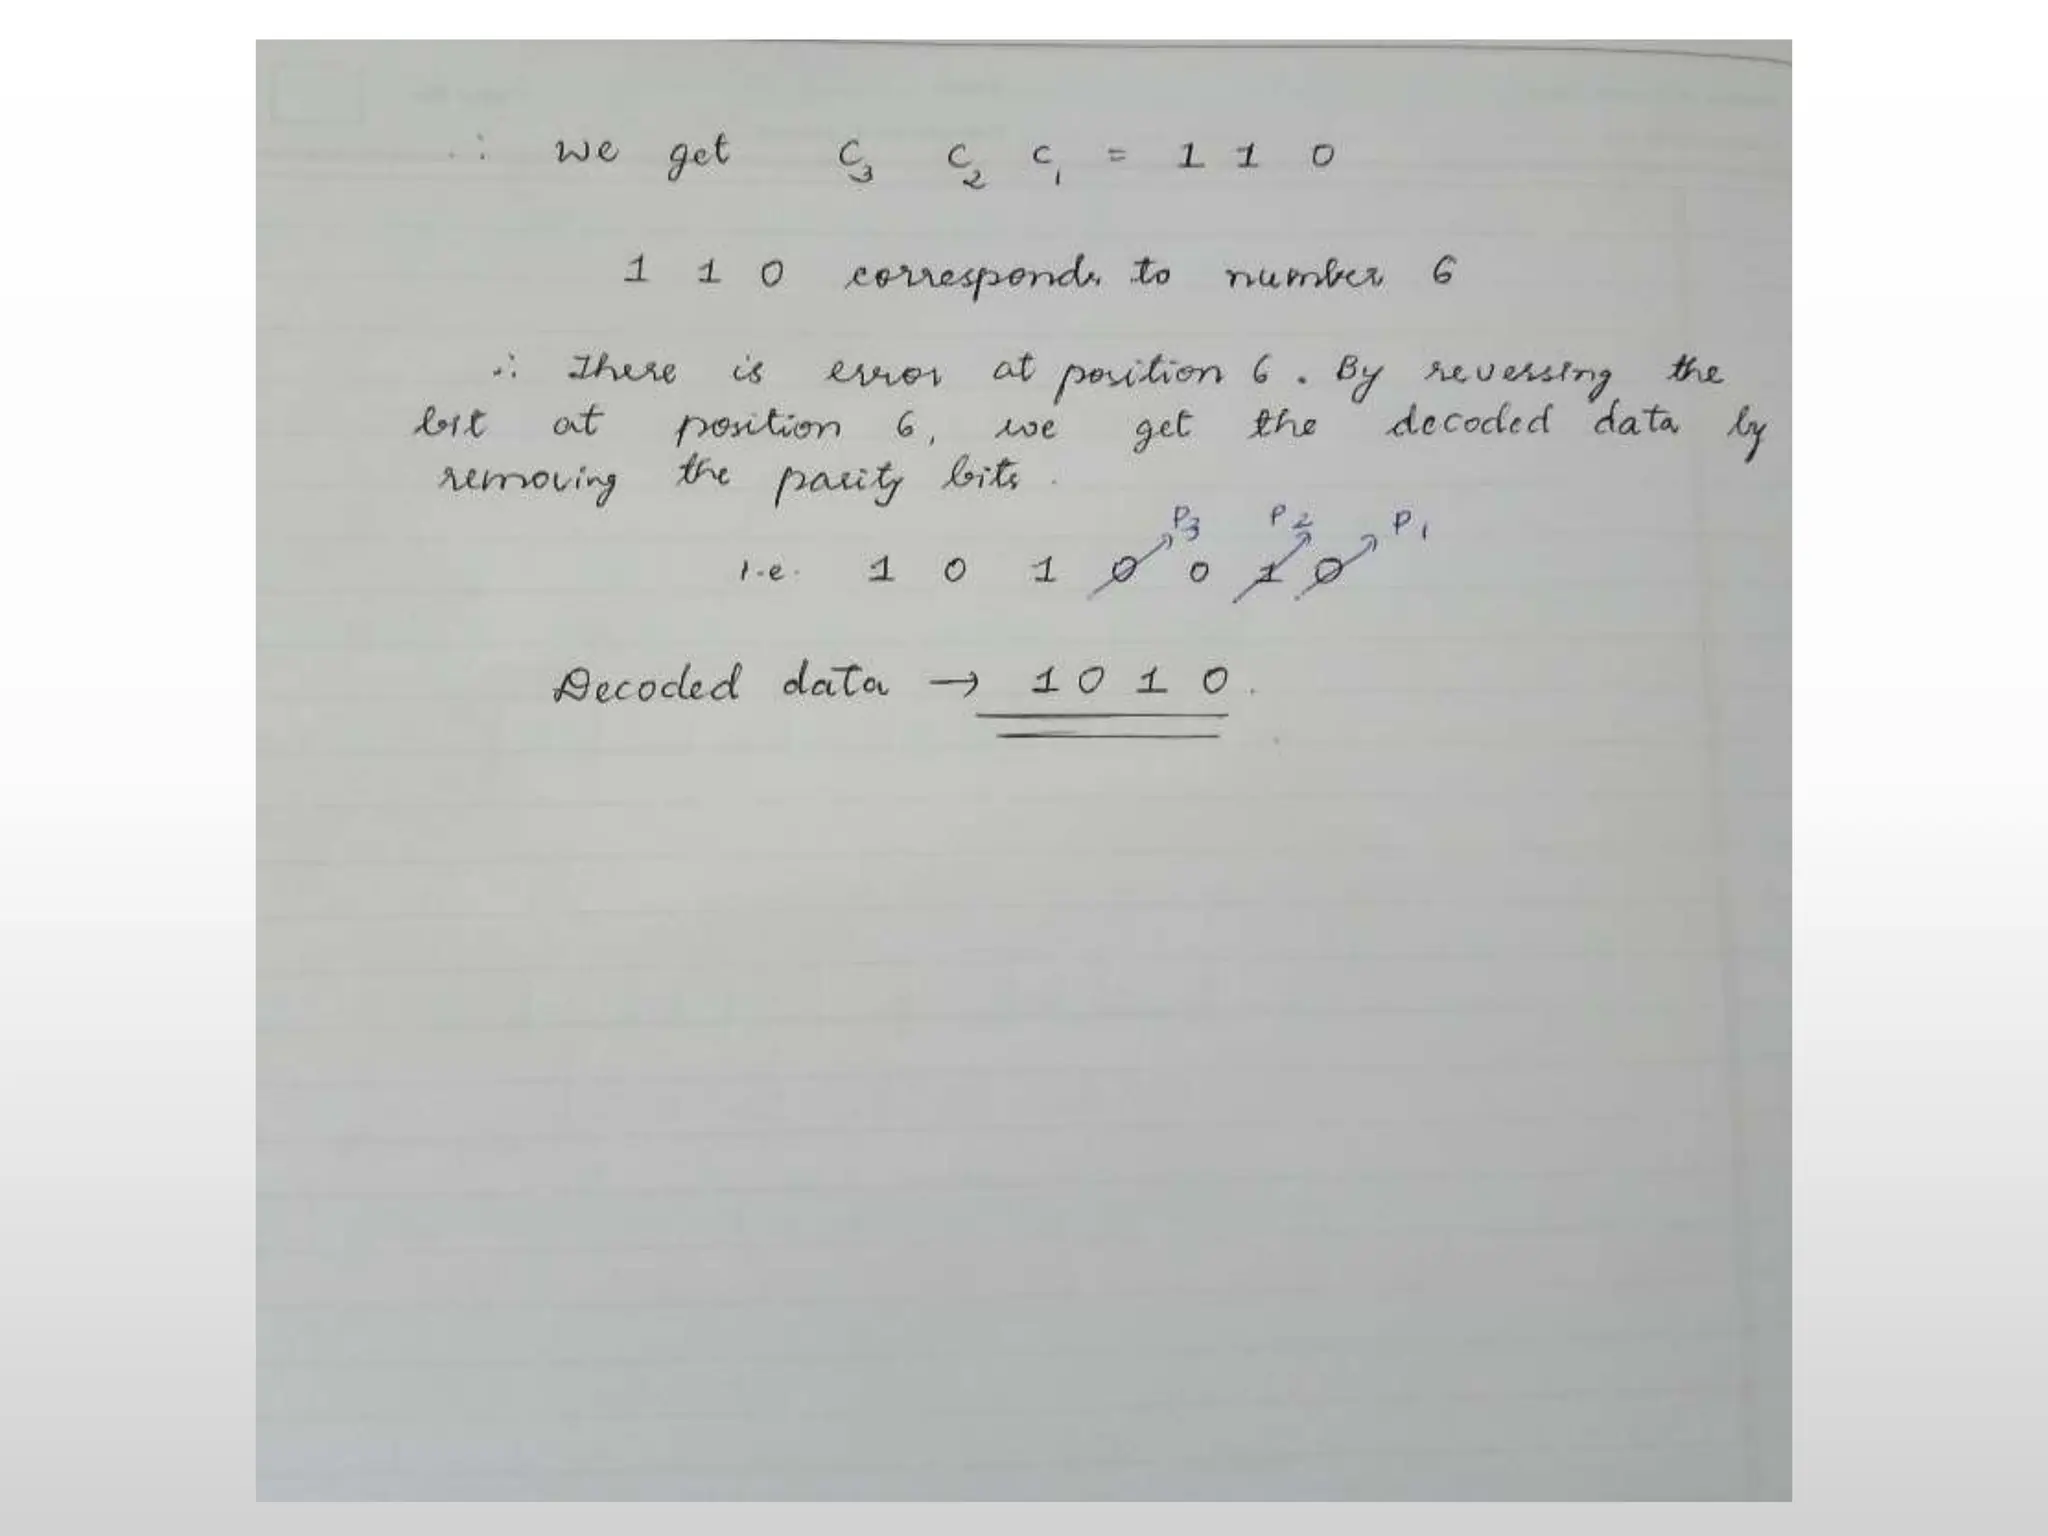 ∴ We get C3 C2 C1 = 1 1 0
1 1 0 corresponds to number 6
∴ There is error at position 6. By reversing the
bit at position 6, we get the decoded data by
removing the parity bits.
P3 P2 P1
i.e. 1 0 1 0 0 1 0
Decoded data → 1 0 1 0.